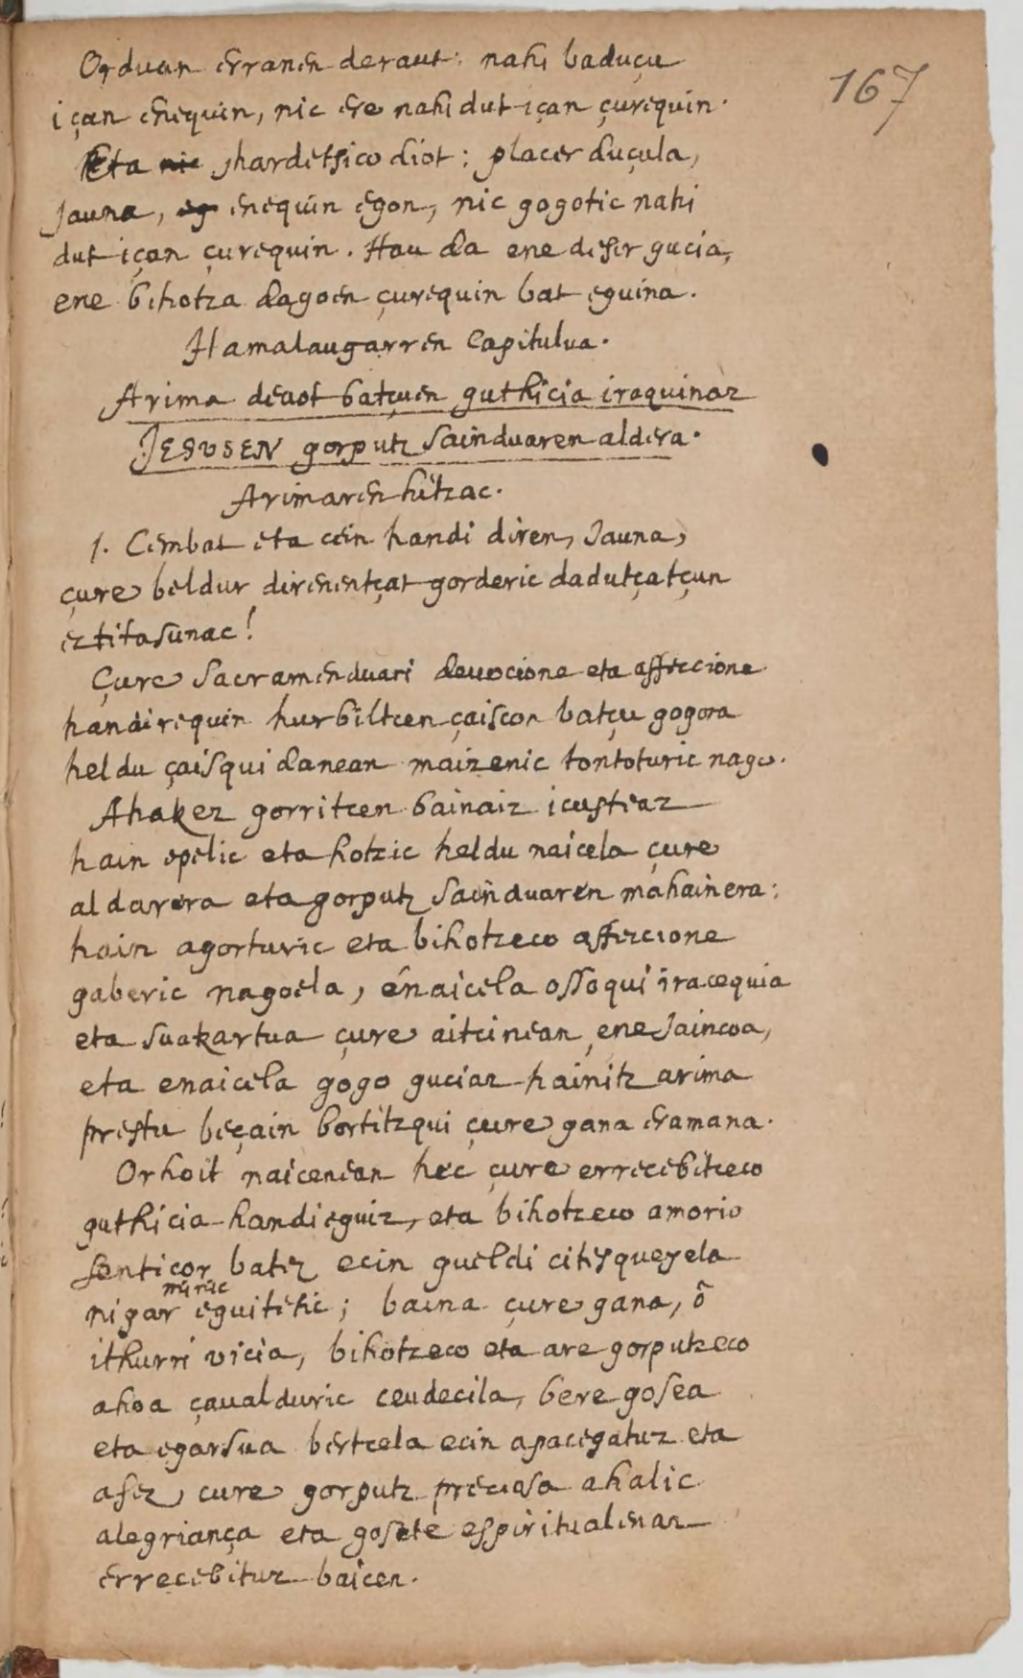 167
Orduan erranen deraut: nahi baduçu
içan enequin, nic ere nahi dut içan çurequin.
Eta nic ihardetsico diot: placer duçula,
Jauna, eg enequin egon, nic gogotic nahi
dut içan çurequin. Hau da ene desir gucia,
ene bihotza dagoen çurequin bat eguina.
Hamalaugarren Capitulua.
Arima devot batçuen guthicia iraquinaz
JESUSEN gorputz sainduaren aldera.
Arimaren hitzac.
1. Cembat eta cein handi diren, Jauna,
çure beldur direnentçat gorderic dadutçatçun
eztitasunac!
Çure Sacramenduari devocione eta affeccione
handirequin hurbiltcen çaiscon batçu gogora
heldu çaisqui danean maizenic tontoturic nago.
Ahakez gorritcen bainaiz icusteaz
hain epelic eta hotzic heldu naicela çure
aldarera eta gorputz sainduaren mahainera:
hain agorturic eta bihotzeco affeccione
gaberic nagoela, enaicela ossoqui iracequia
eta suakartua çure aitcinean, ene Jaincoa,
eta enaicela gogo guciaz hainitz arima
prestu beçain bortitzqui çure gana eramana.
Orhoit naicenean hec çure errecebitceco
guthicia handieguiz, eta bihotzeco amorio
senticor batez ecin gueldi citesqueyela
nigar eguitetic; baina çure gana, ô
ithurri vicia, bihotzeco eta are gorputzeco
ahoa çavalduric ceudecila, bere gosea
eta egarsua bertcela ecin apacegatuz eta
asez, çure gorputz preciosa ahalic
alegriança eta gosete espiritualenaz
errecebituz baicen.